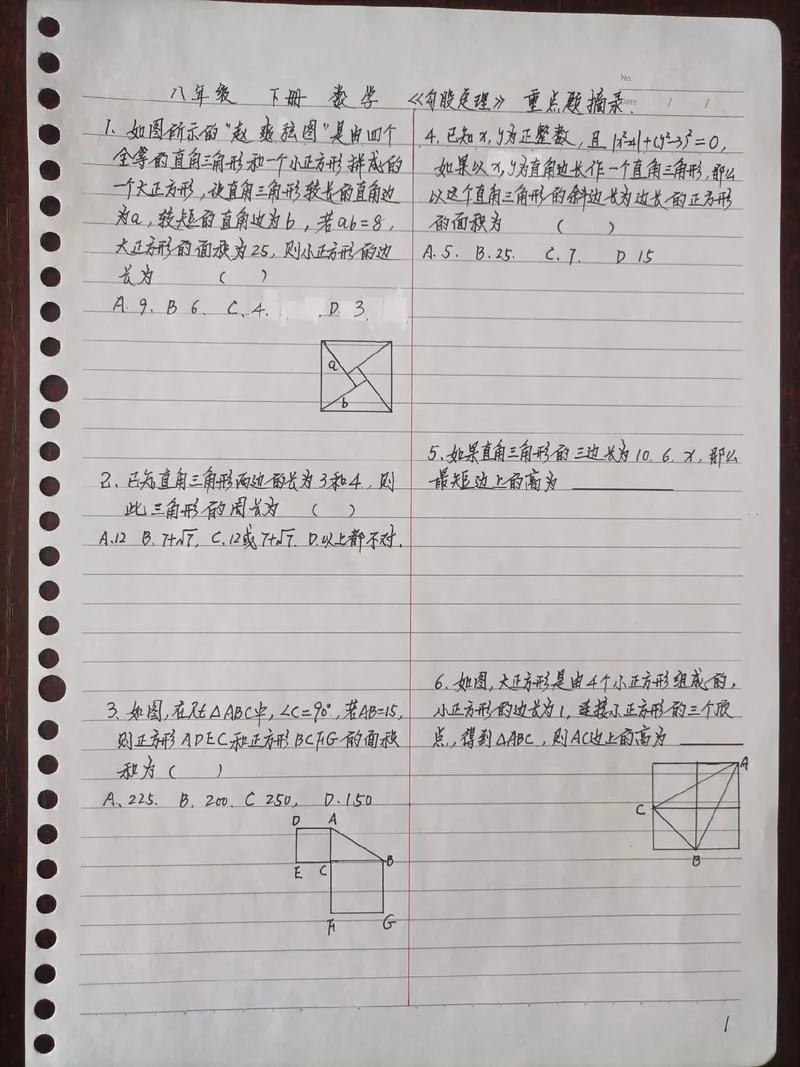 No.
Date / /
八年级 下册 数学 《勾股定理》 重点题摘录.
1. 如图所示的“赵爽弦图”是由四个
全等的直角三角形和一个小正方形拼成的
一个大正方形,设直角三角形较长的直角边
为a,较短的直角边为b,若ab=8,
大正方形的面积为25,则小正方形的边
长为 ( )
A. 9. B 6. C. 4. D. 3.
a
b
2. 已知直角三角形两边的长为3和4,则
此三角形的周长为 ( )
A.12 B. 7+√7. C. 12或7+√7. D.以上都不对.
3. 如图,在Rt△ABC中,∠C=90°,若AB=15,
则正方形ADEC和正方形BCFG的面积
和为( )
A. 225. B. 200. C 250, D. 150
D A
E C B
F G
4. 已知x,y为正整数,且|x²-4|+(y²-3)²=0,
如果以x,y为直角边长作一个直角三角形,那么
以这个直角三角形的斜边长为边长的正方形
的面积为 ( )
A. 5. B. 25. C. 7. D 15
5. 如果直角三角形的三边长为10. 6. x,那么
最短边上的高为
6. 如图,大正方形是由4个小正方形组成的,
小正方形的边长为1,连接小正方形的三个顶
点,,得到△ABC,则AC边上的高为
A
C
B
1